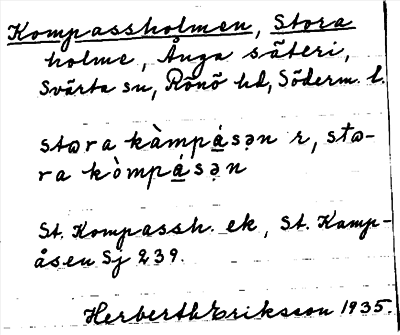 Kompassholmen, Stora
holme, Ånga säteri,
Svärta sn, Rönö hd, Söderm. l.
stora kàmpásən r, sto-
ra kòmpásən
St. Kompassh. ek, St. Kamp-
åsen Sj 239.
Herberth Eriksson 1935.